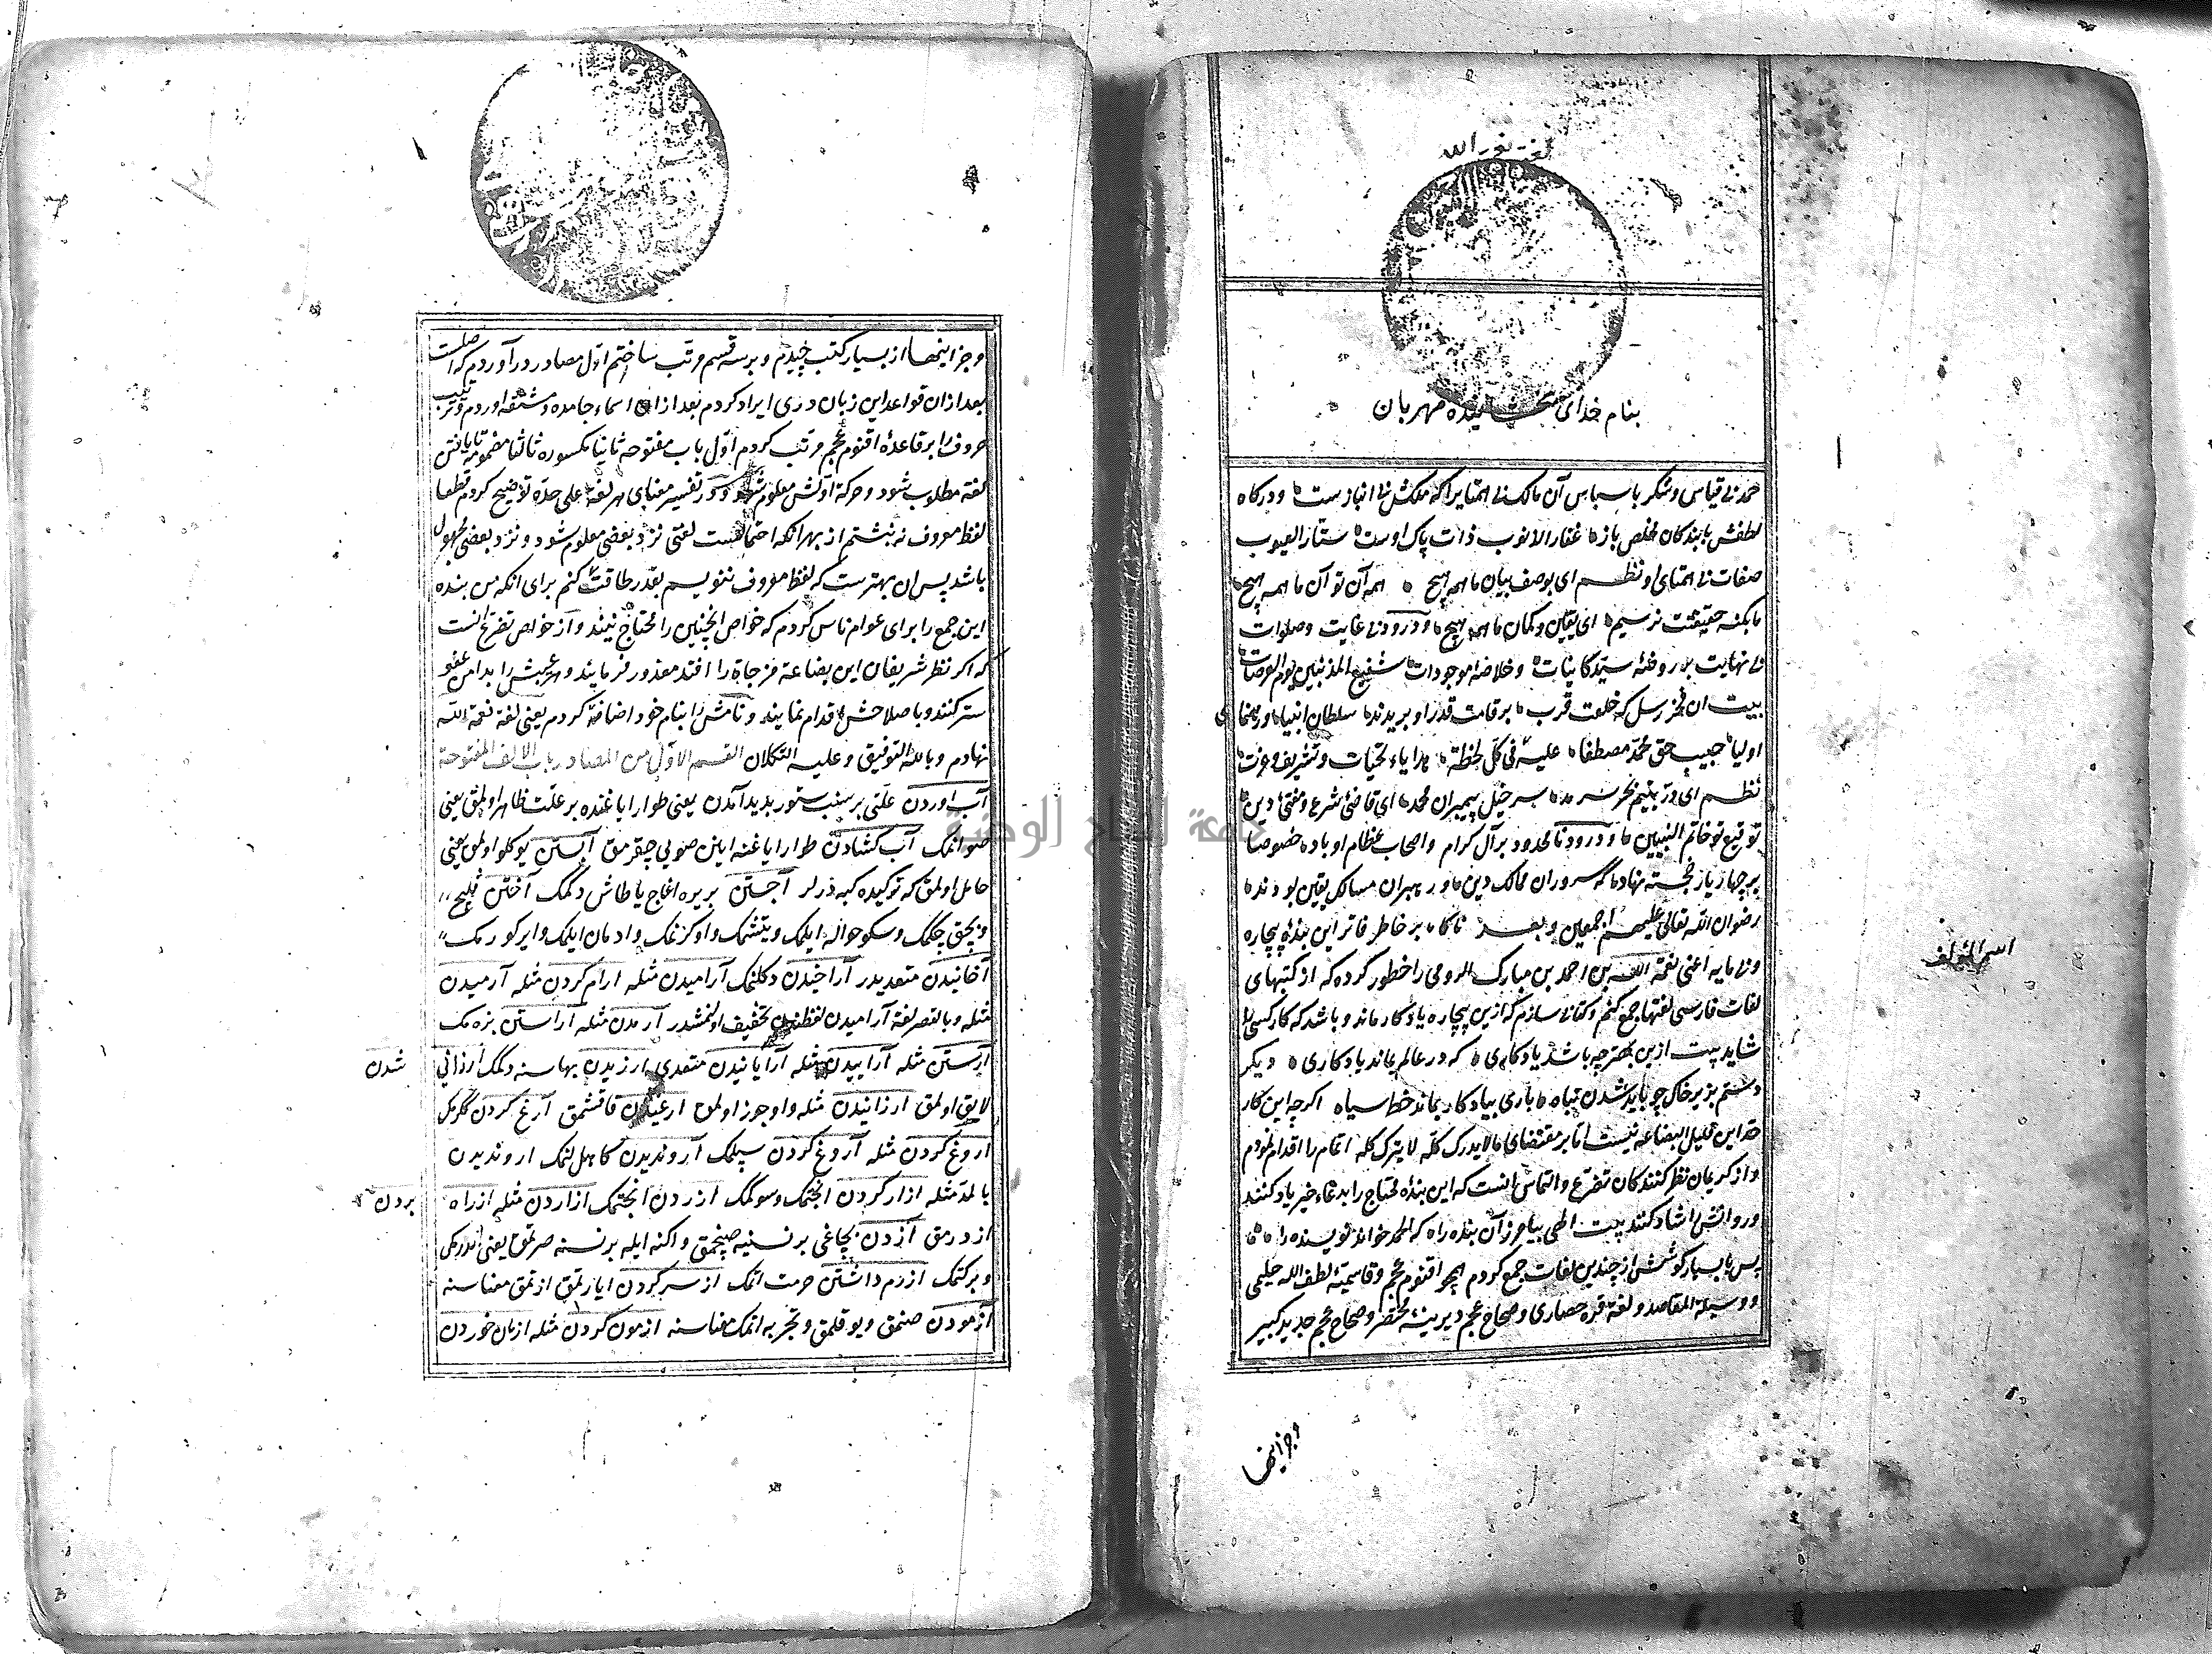 بنام خدای بخشاینده مهربان
حمد بی قیاس و شکر با سپاس آن مالک بی همتایرا که ملکش بی انبازست و درکاه
لطفش با بندکان مخلص باز غفار الذنوب ذات پاک اوست ستار العیوب
صفات بی همتای او نظم ای بوصف بیان ما همه هیچ همه آن تو آن ما همه هیچ
ما بکنه حقیقتت نرسیم ای یقین و کمان ما همه هیچ و درود بی غایت و صلوات
بی نهایت بر روضهٔ سید کاینات و خلاصهٔ موجودات شفیع المذنبین یوم العرصات
بیت آن فخر رسل که خلعت قرب بر قامت قدر او بریدند سلطان انبیا و رهنمای
اولیا حبیب حق محمد مصطفا علیه فی کل لحظة هدایاء تحیات و تشریف و عزت
نظم ای در یتیم فخر سرمد سر خیل پیمبران محمد ای قاضیٔ شرع و مفتیٔ دین
توقیع تو خاتم النبیین و درود نامحدود بر آل کرام و اصحاب عظام او باد خصوصا
بر چهار یار خجسته نهاد که سروران ممالک دین و رهبران مسالک یقین بودند
رضوان الله تعالی علیهم اجمعین و بعد ناکاه بر خاطر فاتر این بندهٔ بیچاره
و بی مایه اعنی نعمة الله بن احمد بن مبارک الرومی را خطور کرد که از کتبهای
لغات فارسی لغتها جمع کنم و کتابی سازم که ازین بیچاره یادکار ماند و باشد که کار کسی را
شاید بیت ازین بهتر چه باشد یادکاری که در عالم بماند یادکاری دیکر
دستم بزیر خاک چو باید شدن تباه باری بیادکار بماند خط سیاه اکرچه این کار
حد این قلیل البضاعه نیست اما بر مقتضای مالا یدرک کله لا یترک کله اتمام را اقدام نمودم
و از کریمان نظر کنندکان تضرع و التماس آنست که این بندهٔ محتاج را بدعاء خیر یاد کنند
و روانش را شاد کنند بیت الهی بیامرز آن بنده را که الحمد خواند نویسنده را
پس با بسیار کوشش از چندین لغات جمع کردم همچو اقنوم عجم و قاسمیهٔ لطف الله حلیمی
و وسیلة المقاصد و لغة قره حصاری و صحاح عجم دیرینهٔ مختصر و صحاح عجم جدید کبیر
و جز اینها
اسم المؤلف
و جز اینها از بسیار کتب چیدم و بر سه قسم مرتب ساختم اول مصادر در آوردم که اصلست
بعد از آن قواعد این زبان دری ایراد کردم بعد از آن اسماء جامده و مشتقه آوردم و ترتیب
حروف را بر قاعدهٔ اقنوم عجم مرتب کردم اول باب مفتوحه ثانیا مکسوره ثالثا مضمومه تا یافتن
لغة مطلوب شود و حرکهٔ اولش معلوم شود و در تفسیر معنای هر لغة علی حده توضیح کردم قطعا
لفظ معروف ننبشتم از بهر آنکه احتمالست لغتی نزد بعضی معلوم شود و نزد بعضی مجهول
باشد پس آن بهترست که لفظ معروف ننویسم بقدر طاقت کنم برای آنکه من بنده
این جمع را برای عوام ناس کردم که خواص اینچنین را محتاج نیند و از خواص تضرع آنست
که اکر نظر شریفان این بضاعة مزجاة را افتد معذور فرمایند و هر عیبش را بدامن عفو
ستر کنند و با صلاحش اقدام نمایند و نامش را بنام خود اضافة کردم یعنی لغة نعمة الله
نهادم و بالله التوفیق و علیه التکلان القسم الاول من المصادر باب الالف المفتوحة
آب آوردن علتی بر سبب ستور پدید آمدن یعنی طوار ایاغنده بر علت ظاهر اولمق یعنی
صو اتمک آب کشادن طوار ایاغنه اینن صویی چقرمق آبستن یوکلو اولمق یعنی
حامل اولمق که ترکیده کبه دیرلر آجستن بریره اغاج یا طاش دکمک آختن قلیچ
و بچق چکمک و سکو حواله ایلمک و یتشمک و اوکرنمک و ادمان ایلمک و ایرکورمک
آخانیدن متعدیدر آراخیدن دکلنمک آرامیدن مثله آرام کردن مثله آرمیدن
مثله و بالقصر لغة آرامیدن لفظندن تخفیف اولنمشدر آرمدن مثله آراستن بزه مک
آرستن مثله آراییدن مثله آرایانیدن متعدی ارزیدن بها سنه دکمک ارزانی شدن
لایق اولمق ارزانیدن مثله و اوجوز اولمق ارغیدن قاقشمق آرغ کردن ککرمک
اروغ کردن مثله آروغ کردن سپلمک آروندیدن کاهل لنمک اروندیدن
بالمد مثله ازار کردن انجتمک و سوکمک ازردن انجتمک ازاردن مثله ازراه بردن
ازدرمق آزدن بچاغی بر نسنیه صنجمق و اکنه ایله بر نسنه صرتمق یعنی
و برکتمک ازرم داشتن حرمت اتمک از سر کردن ایارتمق ازتمق معناسنه
آزمودن صنمق و یوقلمق و تجربه اتمک معناسنه ازمون کردن مثله ازیان خوردن
جامعة النجاح الوطنية